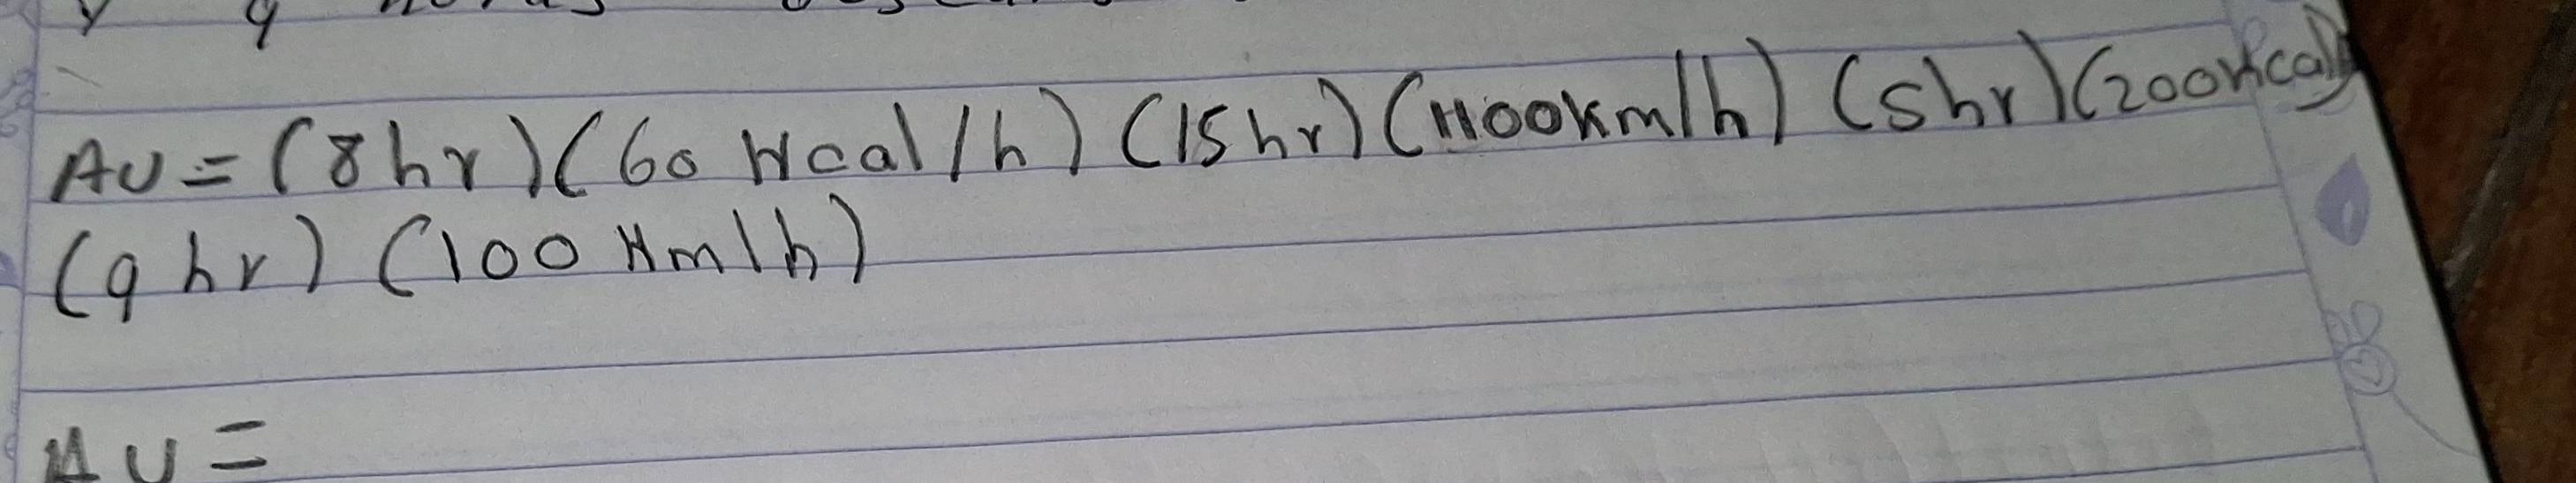 y 9 horas
AU = (8hr)(60 Kcal/h) (15hr) (1100Km/h) (5hr)(200Kcal)
(9hr) (100 Km/h)
AU =